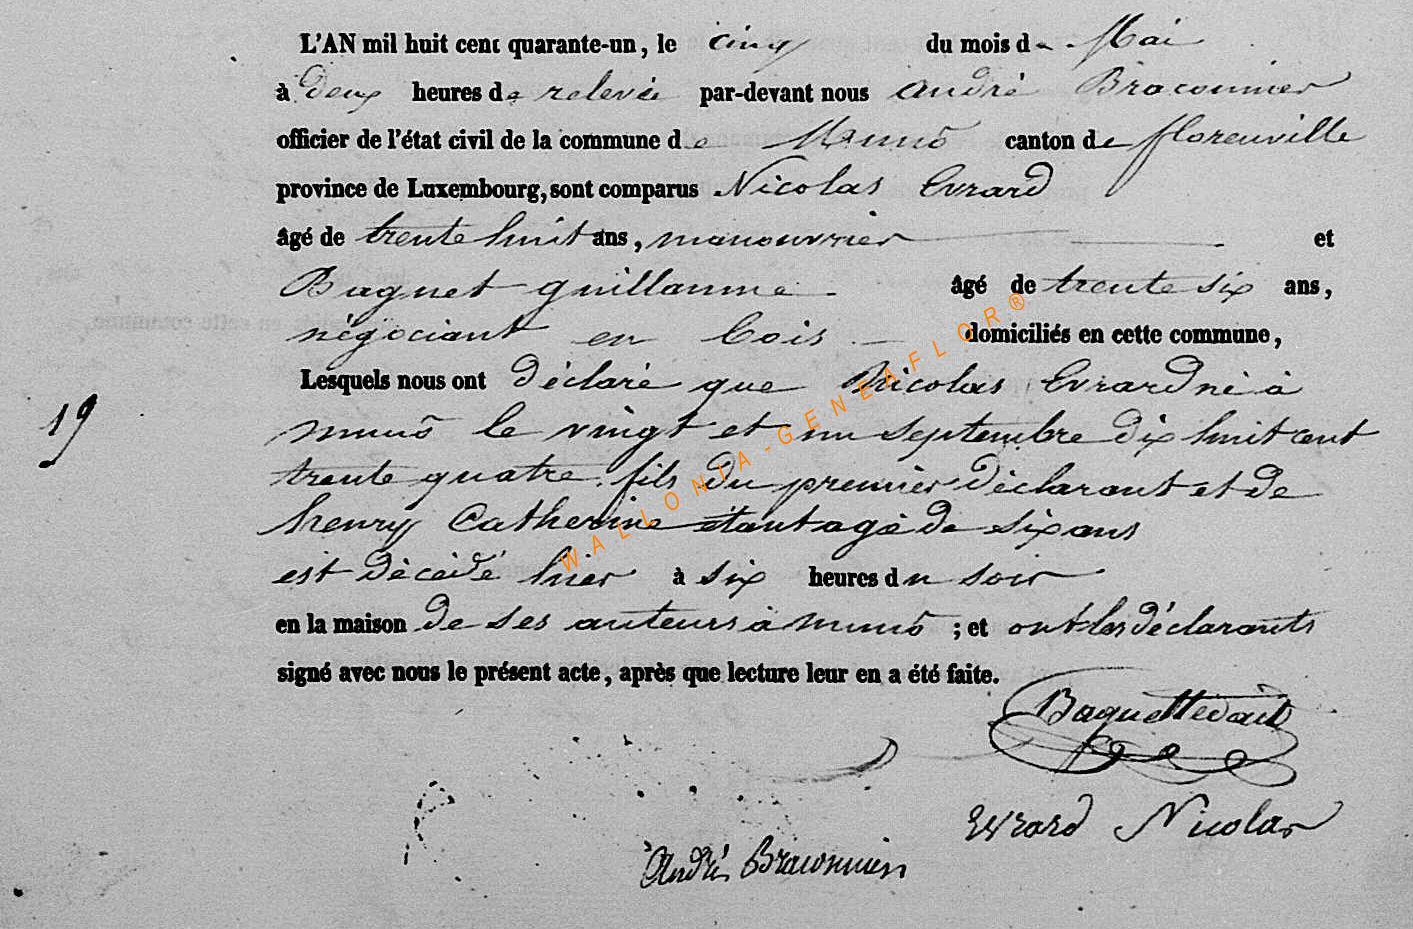 L'AN mil huit cent quarante-un, le cinq du mois de Mai
à deux heures de relevée par-devant nous André Braconnier
officier de l'état civil de la commune de Munô canton de florenville
province de Luxembourg, sont comparus Nicolas Evrard
âgé de trente huit ans, manouvrier et
Baguet guillaume âgé de trente six ans,
négociant en bois domiciliés en cette commune,
Lesquels nous ont déclaré que Nicolas Evrard né à
19
munô le vingt et un septembre dix huit cent
trente quatre fils du premier déclarant et de
henry Catherine étant agé de six ans
est décédé hier à six heures du soir
en la maison de ses auteurs à munô ; et ont les déclarants
signé avec nous le présent acte, après que lecture leur en a été faite.
Evrard Nicolas
André Braconnier
WALLONIA-GENEAFLOR®